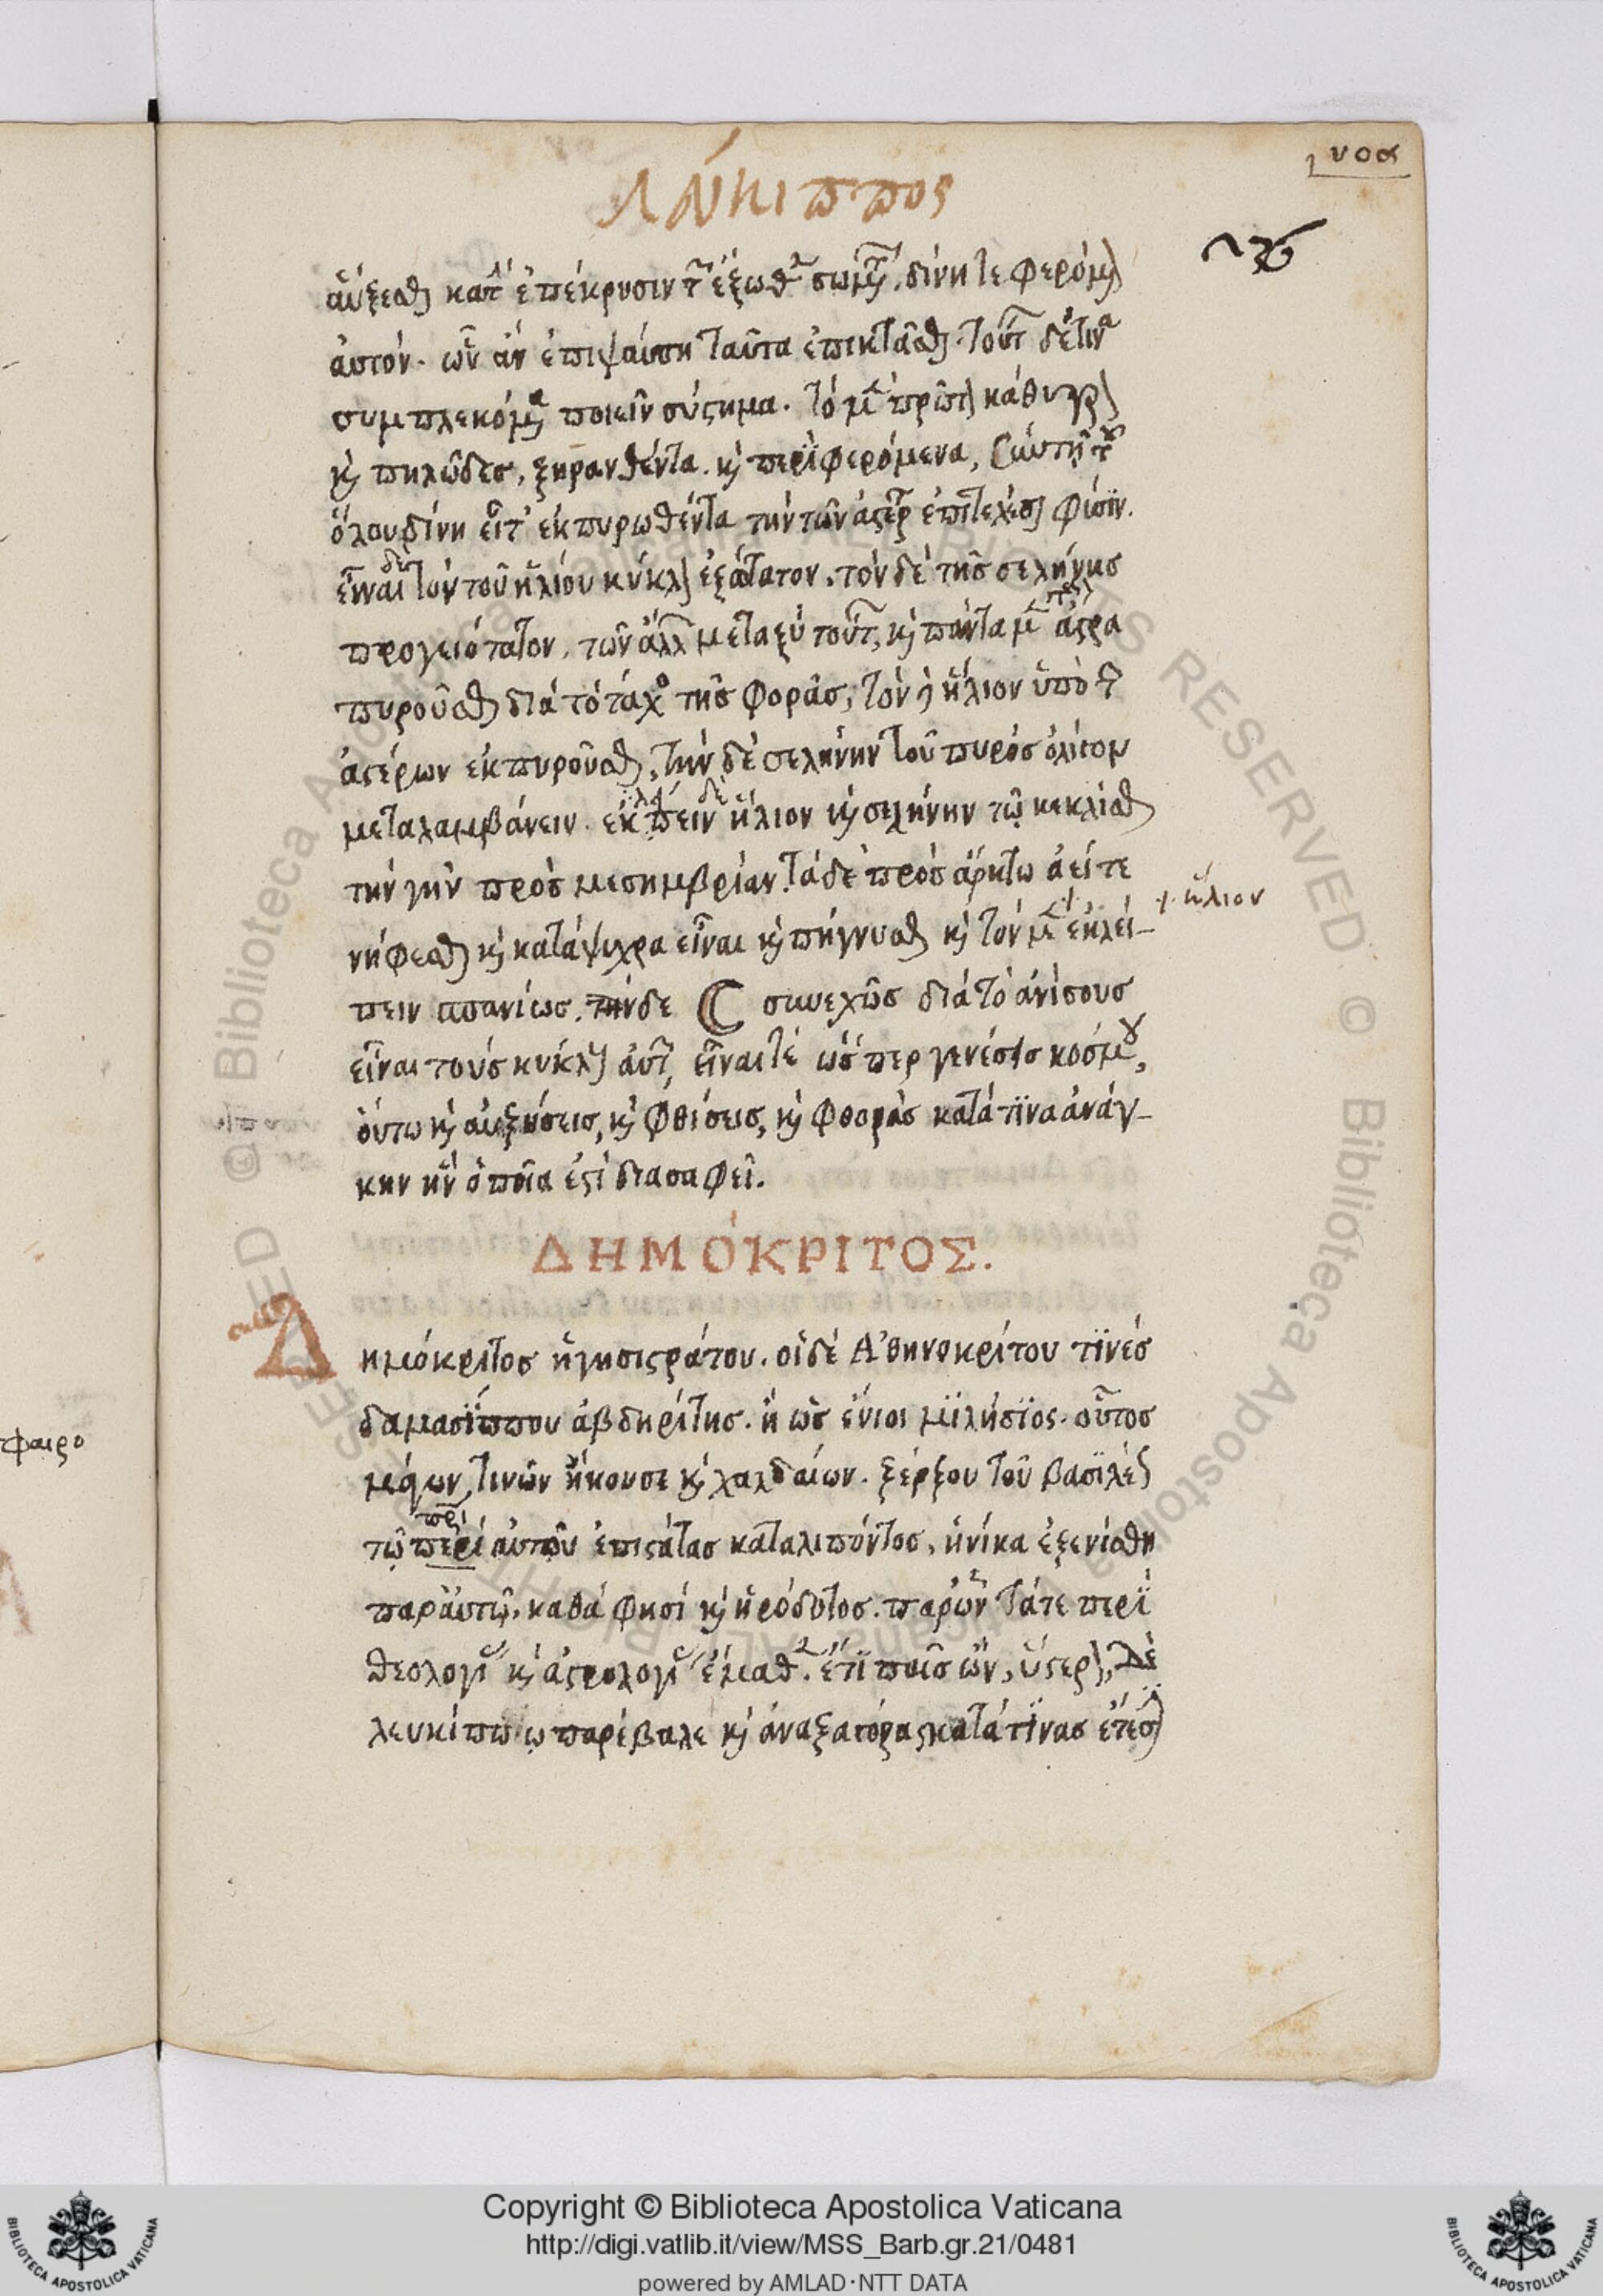 υοα
λεύκιππος
236
αὔξεσθαι κατὰ ἐπέκρυσιν τῶν ἔξωθεν σωμάτων. δίνη τε φερόμενον
αὐτόν. ὧν ἂν ἐπιψαύση ταῦτα ἐπικτᾶσθαι. τούτων δέ τινα
συμπλεκόμενα ποιεῖν σύστημα. τὸ μὲν πρῶτον κάθυγρον
καὶ πηλῶδες, ξηρανθέντα καὶ περιφερόμενα, σὺν τῆ τοῦ
ὅλου δίνη εἶτ' ἐκπυρωθέντα τὴν τῶν ἀστέρων φύσιν.
εἶναι δὲ τὸν τοῦ ἡλίου κύκλον ἐξώτατον. τὸν δὲ τῆς σελήνης
προγειότατον, τῶν ἄλλων μεταξὺ τούτων, καὶ πάντα μὲν τὰ ἄστρα
πυροῦσθαι διὰ τὸ τάχος τῆς φορᾶς, τὸν δὲ ἥλιον ὑπὸ τῶν
ἀστέρων ἐκπυροῦσθαι, τὴν δὲ σελήνην τοῦ πυρὸς ὀλίγον
μεταλαμβάνειν. ἐκλείπειν δὲ ἥλιον καὶ σελήνην τῷ κεκλίσθαι
τὴν γῆν πρὸς μεσημβρίαν. τὰ δὲ πρὸς ἄρκτω ἀεί τε
νήφεσθαι καὶ κατάψυχρα εἶναι καὶ πήγνυσθαι καὶ τὸν μὲν ἐκλεί-
ἥλιον
πειν σπανίως. τὴν δὲ ☾ συνεχῶς διὰ τὸ ἀνίσους
εἶναι τοὺς κύκλους αὐτῶν, εἶναί τε ὥσπερ γενέσεις κόσμου,
οὕτω καὶ αὐξήσεις, καὶ φθίσεις, καὶ φθορὰς κατά τινα ἀνάγ-
κην ἣν ὁποία ἐστὶ διασαφεῖ.
ΔΗΜΌΚΡΙΤΟΣ.
Δημόκριτος ἡγησιστράτου. οἱ δὲ Ἀθηνοκρίτου τινὲς
δαμασίππου ἀβδηρίτης. ἢ ὡς ἔνιοι μιλήσιος. οὗτος
μάγων τινῶν ἤκουσε καὶ χαλδαίων. ξέρξου τοῦ βασιλέως
τῷ περὶ αὐτοῦ ἐπιστάτας καταλιπόντος, ἡνίκα ἐξενίσθη
παρ' αὐτῷ, καθά φησι καὶ ἡρόδοτος. παρ' ὧν τά τε περὶ
θεολογίας καὶ ἀστρολογίας ἔμαθεν. ἔτι παῖς ὤν, ὕστερον, δὲ
λευκίππω παρέβαλε καὶ ἀναξαγόρας κατά τινας ἔτεσιν
φαιρο
Copyright © Biblioteca Apostolica Vaticana
http://digi.vatlib.it/view/MSS_Barb.gr.21/0481
powered by AMLAD·NTT DATA